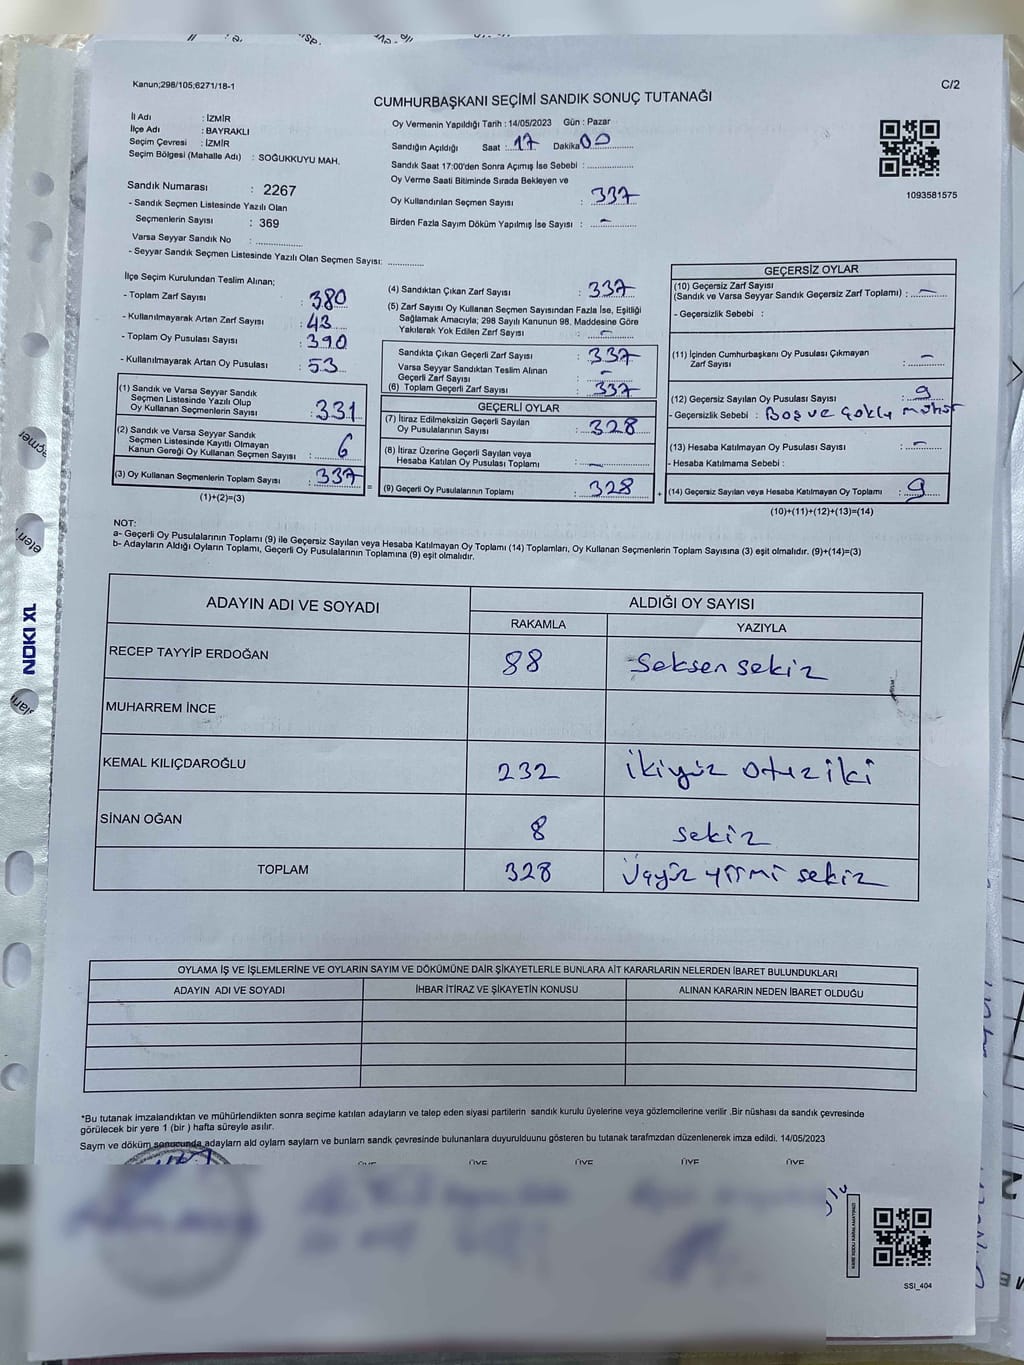 Kanun;298/105;6271/18-1
C/2
CUMHURBAŞKANI SEÇİMİ SANDIK SONUÇ TUTANAĞI
İl Adı : İZMİR
İlçe Adı : BAYRAKLI
Seçim Çevresi : İZMİR
Seçim Bölgesi (Mahalle Adı) : SOĞUKKUYU MAH.
Oy Vermenin Yapıldığı Tarih : 14/05/2023 Gün : Pazar
Sandığın Açıldığı Saat : 17 Dakika 00
Sandık Saat 17:00'den Sonra Açılmış İse Sebebi :
Oy Verme Saati Bitiminde Sırada Bekleyen ve
Oy Kullandırılan Seçmen Sayısı : 337
Birden Fazla Sayım Döküm Yapılmış İse Sayısı : -
1093581575
Sandık Numarası : 2267
- Sandık Seçmen Listesinde Yazılı Olan
Seçmenlerin Sayısı : 369
Varsa Seyyar Sandık No :
- Seyyar Sandık Seçmen Listesinde Yazılı Olan Seçmen Sayısı:
İlçe Seçim Kurulundan Teslim Alınan;
- Toplam Zarf Sayısı : 380
- Kullanılmayarak Artan Zarf Sayısı : 43
- Toplam Oy Pusulası Sayısı : 390
- Kullanılmayarak Artan Oy Pusulası : 53
(1) Sandık ve Varsa Seyyar Sandık
Seçmen Listesinde Yazılı Olup
Oy Kullanan Seçmenlerin Sayısı : 331
(2) Sandık ve Varsa Seyyar Sandık
Seçmen Listesinde Kayıtlı Olmayan
Kanun Gereği Oy Kullanan Seçmen Sayısı : 6
(3) Oy Kullanan Seçmenlerin Toplam Sayısı : 337
(1)+(2)=(3)
(4) Sandıktan Çıkan Zarf Sayısı : 337
(5) Zarf Sayısı Oy Kullanan Seçmen Sayısından Fazla İse, Eşitliği
Sağlamak Amacıyla; 298 Sayılı Kanunun 98. Maddesine Göre
Yakılarak Yok Edilen Zarf Sayısı : -
Sandıkta Çıkan Geçerli Zarf Sayısı : 337
Varsa Seyyar Sandıktan Teslim Alınan
Geçerli Zarf Sayısı : -
(6) Toplam Geçerli Zarf Sayısı : 337
GEÇERLİ OYLAR
(7) İtiraz Edilmeksizin Geçerli Sayılan
Oy Pusulalarının Sayısı : 328
(8) İtiraz Üzerine Geçerli Sayılan veya
Hesaba Katılan Oy Pusulası Toplamı : -
(9) Geçerli Oy Pusulalarının Toplamı : 328
GEÇERSİZ OYLAR
(10) Geçersiz Zarf Sayısı
(Sandık ve Varsa Seyyar Sandık Geçersiz Zarf Toplamı) : -
- Geçersizlik Sebebi :
(11) İçinden Cumhurbaşkanı Oy Pusulası Çıkmayan
Zarf Sayısı : -
(12) Geçersiz Sayılan Oy Pusulası Sayısı : 9
- Geçersizlik Sebebi : Boş ve çoklu mühür
(13) Hesaba Katılmayan Oy Pusulası Sayısı : -
- Hesaba Katılmama Sebebi :
(14) Geçersiz Sayılan veya Hesaba Katılmayan Oy Toplamı : 9
(10)+(11)+(12)+(13)=(14)
NOT:
a- Geçerli Oy Pusulalarının Toplamı (9) ile Geçersiz Sayılan veya Hesaba Katılmayan Oy Toplamı (14) Toplamları, Oy Kullanan Seçmenlerin Toplam Sayısına (3) eşit olmalıdır. (9)+(14)=(3)
b- Adayların Aldığı Oyların Toplamı, Geçerli Oy Pusulalarının Toplamına (9) eşit olmalıdır.
ADAYIN ADI VE SOYADI
ALDIĞI OY SAYISI
RAKAMLA
YAZIYLA
RECEP TAYYİP ERDOĞAN 88 Seksen sekiz
MUHARREM İNCE
KEMAL KILIÇDAROĞLU 232 İkiyüz otuz iki
SİNAN OĞAN 8 sekiz
TOPLAM 328 Üçyüz yirmi sekiz
NOKI XL
OYLAMA İŞ VE İŞLEMLERİNE VE OYLARIN SAYIM VE DÖKÜMÜNE DAİR ŞİKAYETLERLE BUNLARA AİT KARARLARIN NELERDEN İBARET BULUNDUKLARI
ADAYIN ADI VE SOYADI
İHBAR İTİRAZ VE ŞİKAYETİN KONUSU
ALINAN KARARIN NEDEN İBARET OLDUĞU
*Bu tutanak imzalandıktan ve mühürlendikten sonra seçime katılan adayların ve talep eden siyasi partilerin sandık kurulu üyelerine veya gözlemcilerine verilir .Bir nüshası da sandık çevresinde
görülecek bir yere 1 (bir ) hafta süreyle asılır.
Sayım ve döküm sonucunda adayların ald oyların sayların ve bunların sandık çevresinde bulunanlara duyurulduunu gösteren bu tutanak tarafımzdan düzenlenerek imza edildi. 14/05/2023
ÜYE ÜYE ÜYE ÜYE ÜYE
SSI_404